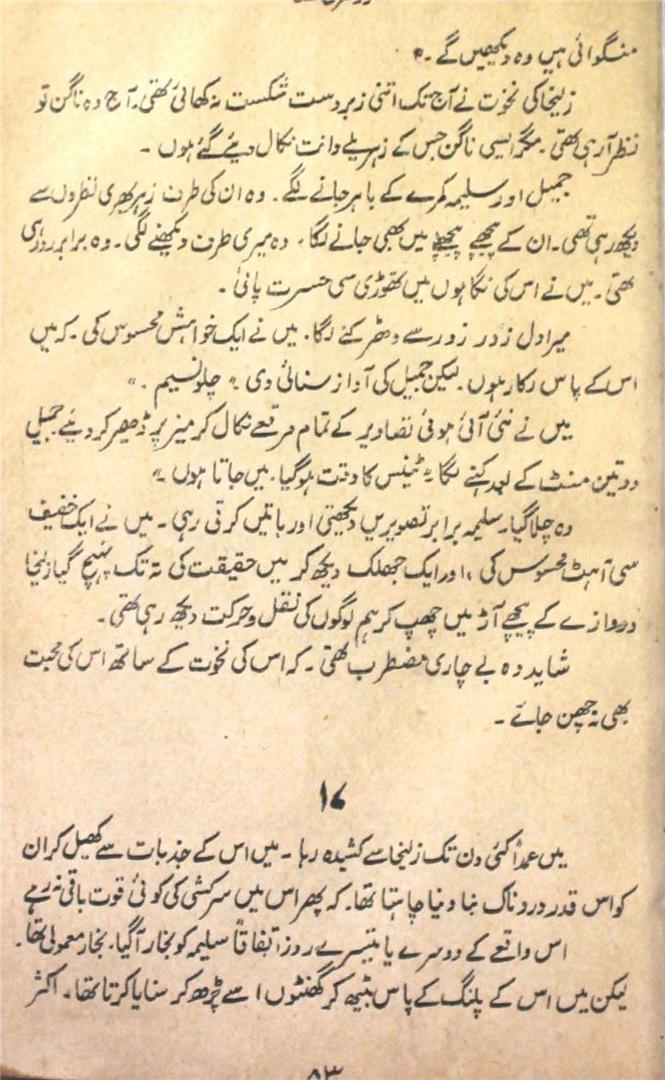 منگوائی ہیں وہ دیکھیں گے۔"
زلیخا کی نخوت نے آج تک اتنی زبردست شکست نہ کھائی تھی۔ آج وہ ناگن تو
نظر آرہی تھی۔ مگر ایسی ناگن جس کے زہریلے دانت نکال دیئے گئے ہوں ۔
جمیل اور سلیمہ کمرے کے باہر جانے لگے۔ وہ ان کی طرف زہر بھری نظروں سے
دیکھ رہی تھی۔ ان کے پیچھے پیچھے میں بھی جانے لگا۔ وہ میری طرف دیکھنے لگی۔ وہ برابر رو رہی
تھی۔ میں نے اس کی نگاہوں میں تھوڑی سی حسرت پائی ۔
میرا دل زور زور سے دھڑکنے لگا۔ میں نے ایک خواہش محسوس کی۔ کہ میں
اس کے پاس رکا رہوں۔ لیکن جمیل کی آواز سنائی دی ۔" چلو نسیم ۔"
میں نے نئی آئی ہوئی تصاویر کے تمام مرقعے نکال کر میز پر ڈھیر کر دیئے جمیل
دو تین منٹ کے بعد کہنے لگا " ٹینس کا وقت ہوگیا۔ میں جاتا ہوں ۔"
وہ چلا گیا۔ سلیمہ برابر تصویریں دیکھتی اور باتیں کرتی رہی ۔ میں نے ایک خفیف
سی آہٹ محسوس کی ، اور ایک جھلک دیکھ کر میں حقیقت کی تہ تک پہنچ گیا زلیخا
دروازے کے پیچھے آڑ میں چھپ کر ہم لوگوں کی نقل وحرکت دیکھ رہی تھی۔
شاید وہ بے چاری مضطرب تھی ۔ کہ اس کی نخوت کے ساتھ اس کی محبت
بھی نہ چھن جائے ۔
۱۷
میں عمداً کئی دن تک زلیخا سے کشیدہ رہا ۔ میں اس کے جذبات سے کھیل کر ان
کو اس قدر دردناک بنا دینا چاہتا تھا۔ کہ پھر اس میں سرکشی کی کوئی قوت باقی نہ رہے
اس واقعے کے دوسرے یا تیسرے روز اتفاقاً سلیمہ کو بخار آگیا۔ بخار معمولی تھا۔
لیکن میں اس کے پلنگ کے پاس بیٹھ کر گھنٹوں اسے پڑھ کر سنایا کرتا تھا۔ اکثر
۸۳